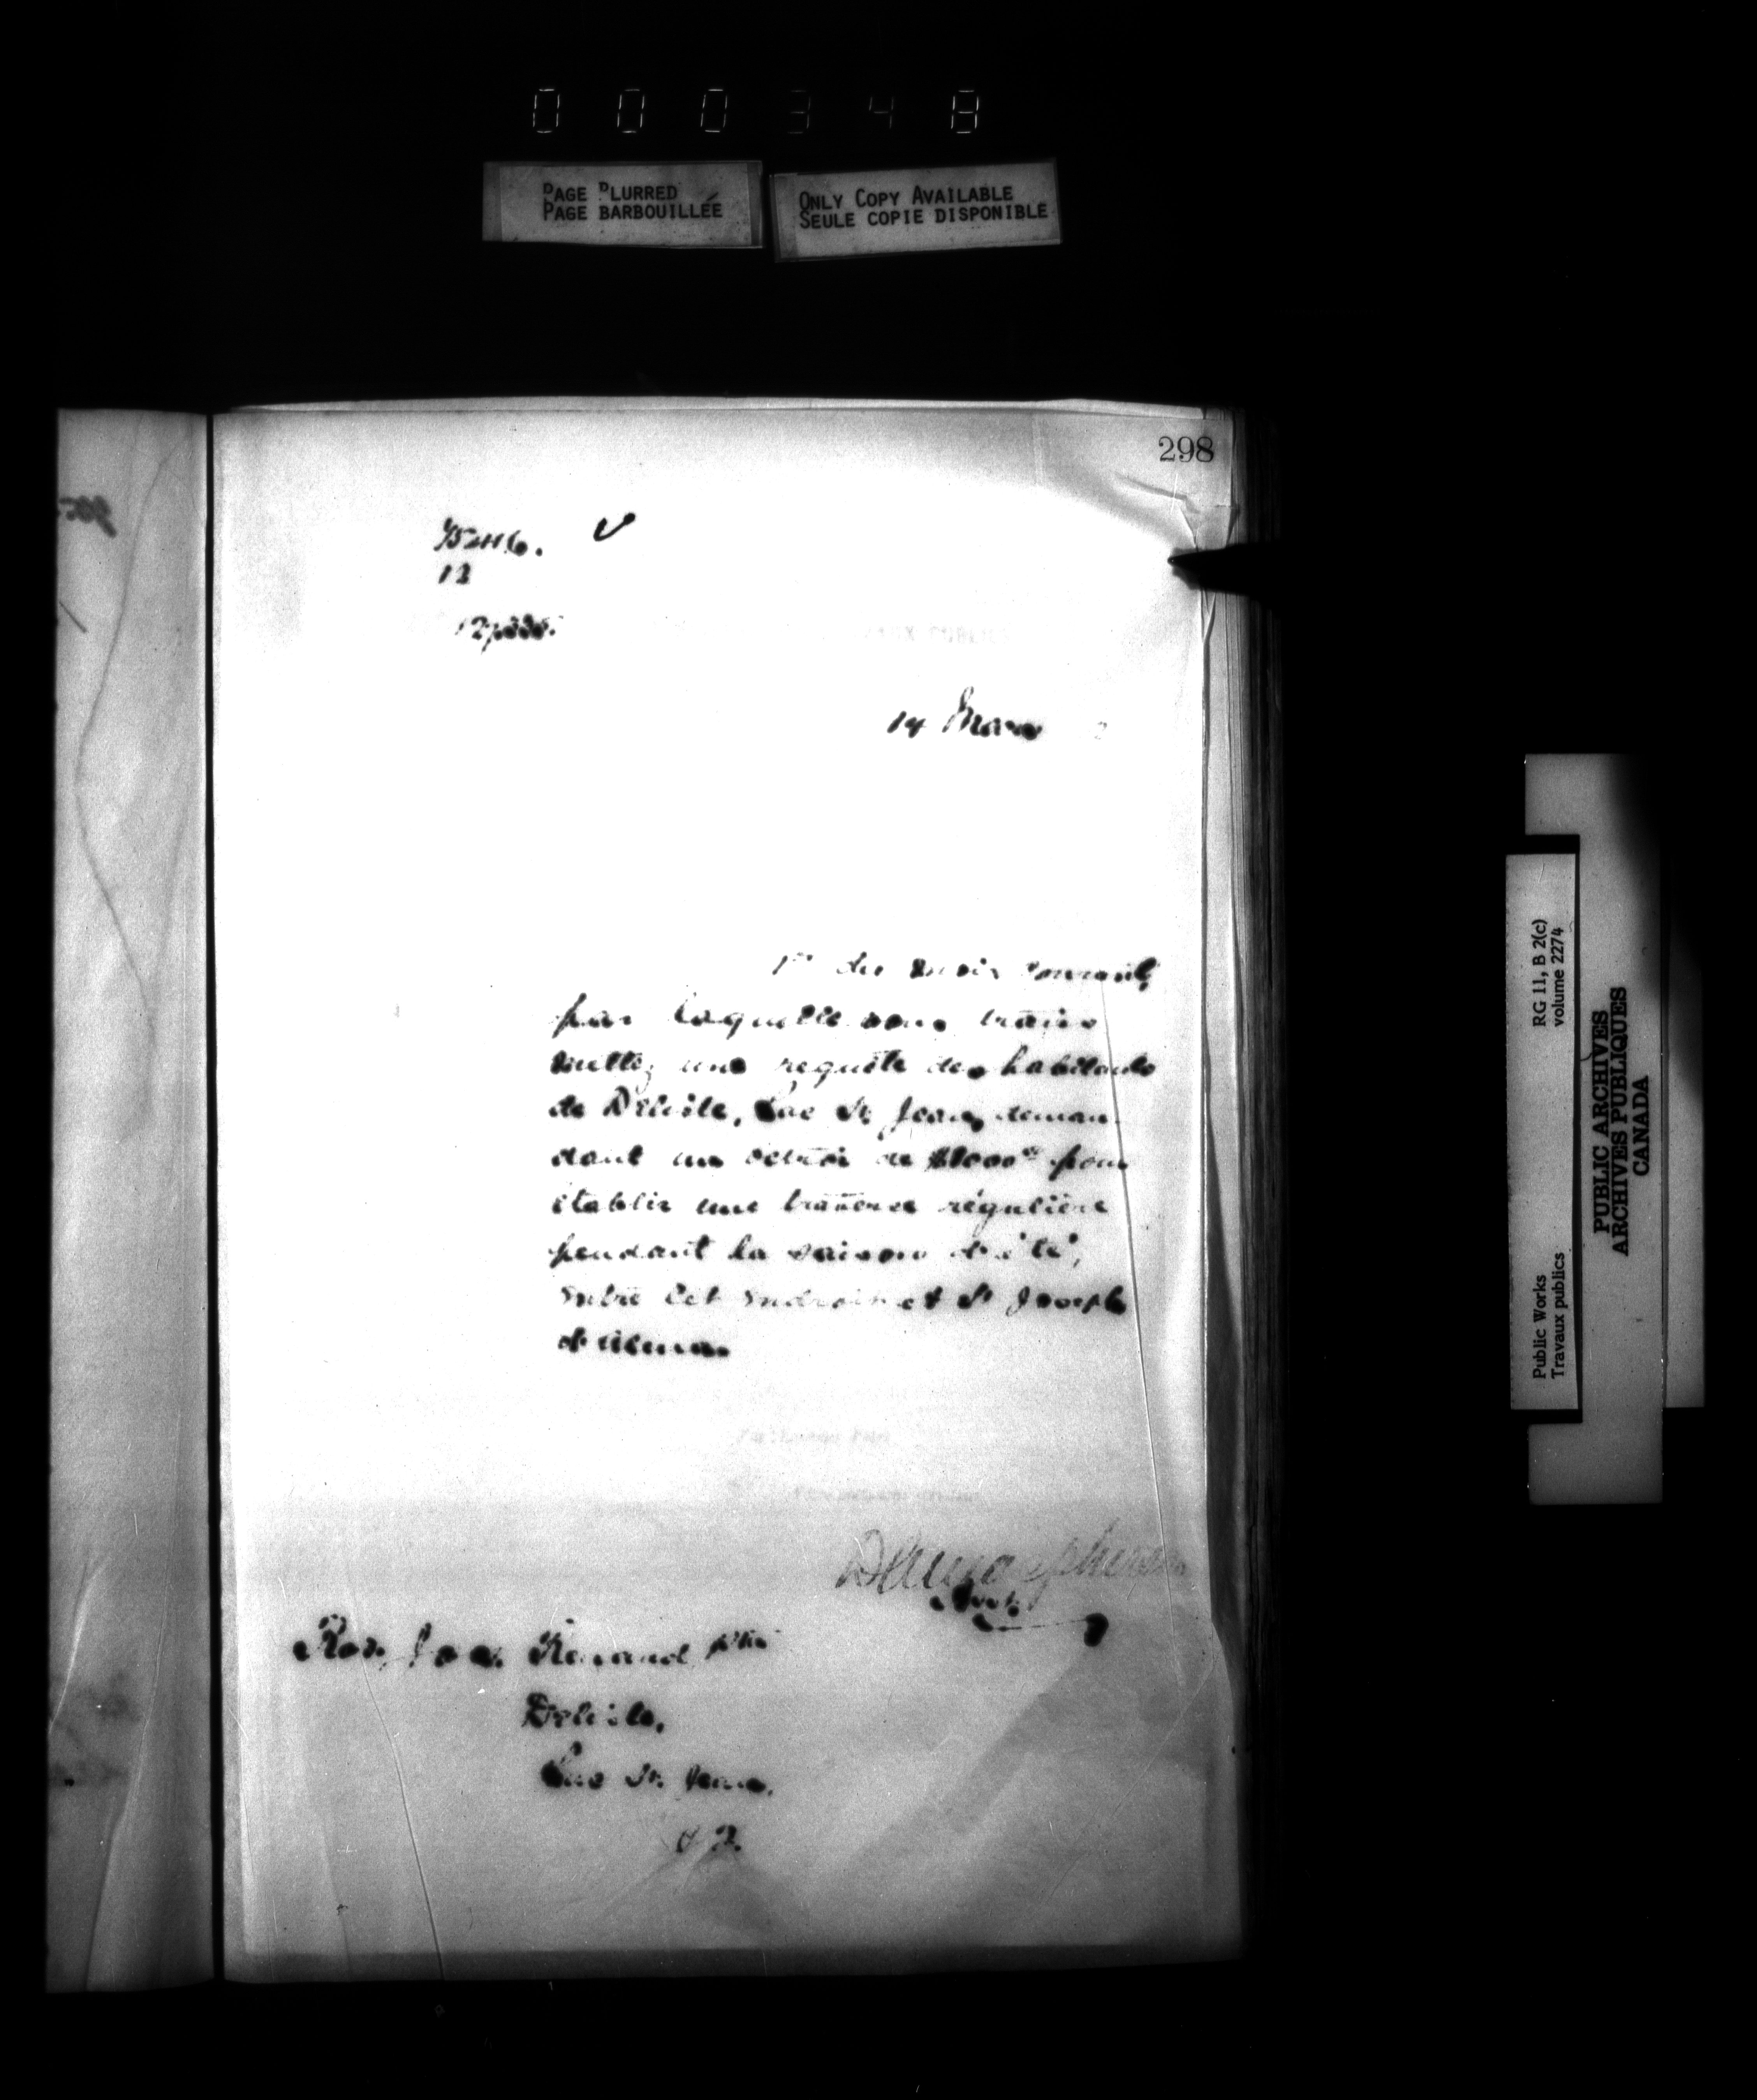 000348
PAGE BLURRED
PAGE BARBOUILLÉE
ONLY COPY AVAILABLE
SEULE COPIE DISPONIBLE
298
12
14 Mars 2
1er du mois courant,
par laquelle vous trans
mettez une requête des habitants
de Delisle, Lac St Jean, deman
dant un octroi de $1000 pour
établir une traverse régulière
pendant la saison d'été,
entre cet endroit et St Joseph
d'Alma.
Rev. Jos. Renaud Ptre
Delisle,
Lac St. Jean.
P.Q.
RG 11, B 2(c)
volume 2274
Public Works
Travaux publics
PUBLIC ARCHIVES
ARCHIVES PUBLIQUES
CANADA